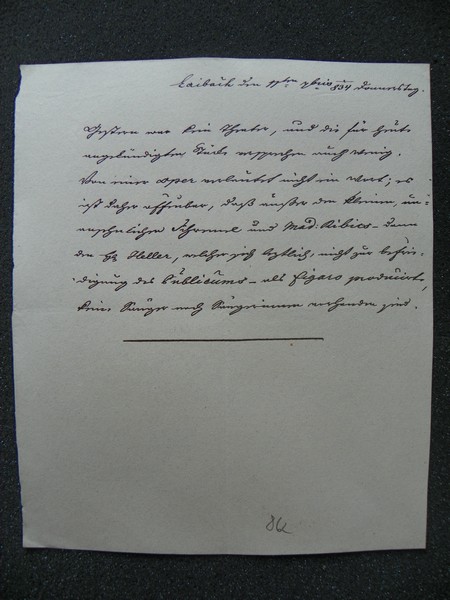 Laibach den 11ten 7bris 834 Donnerstag.
Gestern war kein Theater, und die für heute
angekündigten Stücke versprechen auch wenig.
Von einer Oper verlautet nicht ein Wort; es
ist daher offenbar, daß außer der kleinen, un-
ansehnlichen und Mad. Ribics - dann
den H: Heller, welcher sich letzlich, nicht zur Befrie-
digung des Publicums - als Figaro producirte,
keine Sänger noch Sängerinnen vorhanden sind.
86